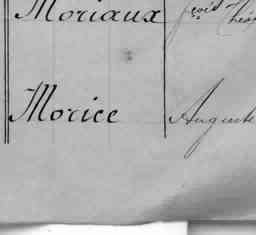 Moriaux
Morice Auguste